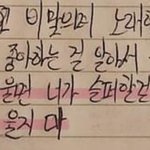 비밀의 노래
좋아하는 걸 알아서
울면 너가 슬퍼할걸
울지 마